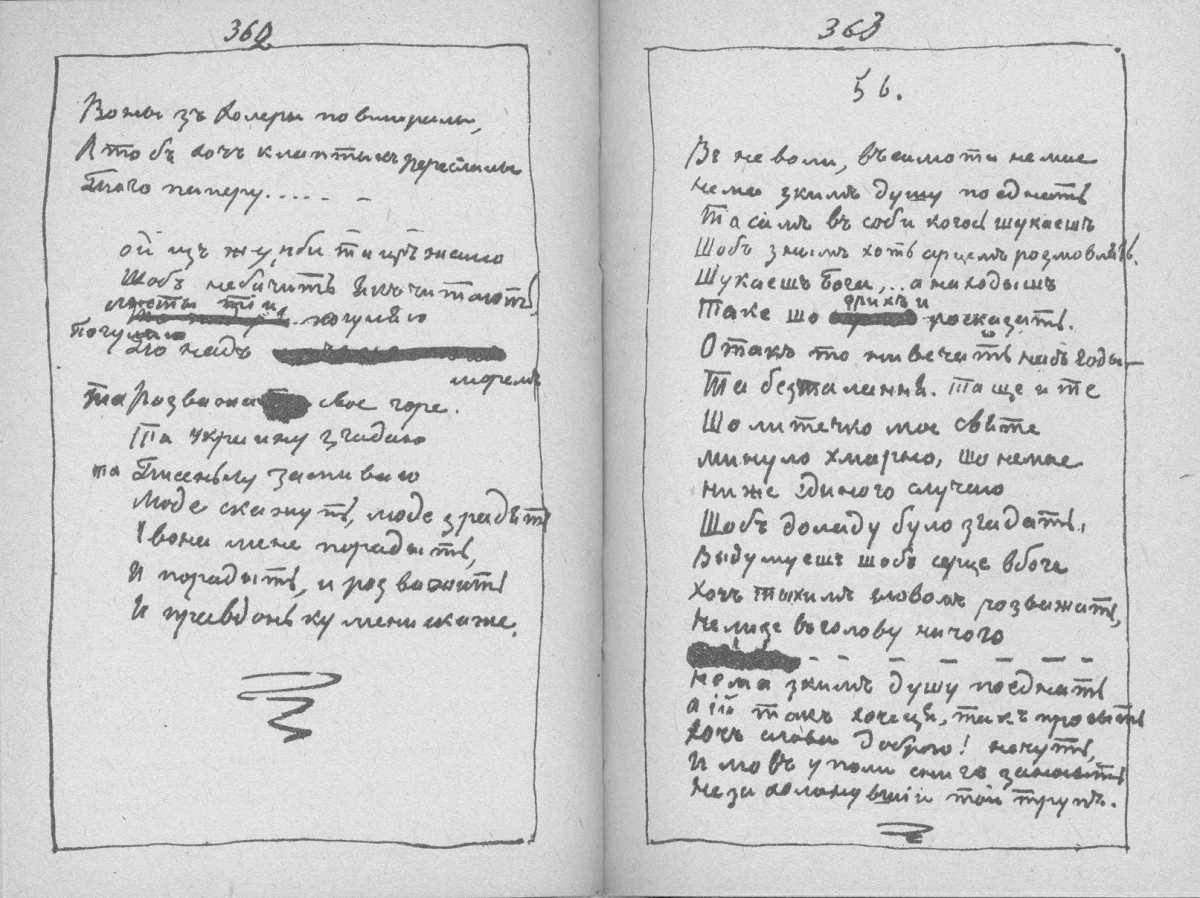 362
Воны зъ холеры повмирали,
А то бъ хочъ клаптыкъ переслалы
Того паперу..... –
ой изъ журби та изъ жалю
Щобъ небачить якъ читають
листы тіи
погуляю
погуляю
По надъ
моремъ
та Розважа свое горе.
Та украину згадаю
та Писеньку заспиваю
Люде скажуть, люде зрадять
І вона мене порадыть,
И порадыть, и розважить
И правдоньку мени скаже.
363
56.
Въ неволи, въ самоти немае
нема зкимъ душу поеднать
Та самъ въ соби когось шукаешъ
Щобъ знымъ хоть сърцемъ розмовлять.
Шукаешъ Бога,.. а находышъ
грихъ и
Таке що росказать.
Отакъ то нивечать насъ годы
Та безталання. та ще и те
Що литечко мое свъте
минуло хмарно, що немае
ниже єдиного случаю
Щобъ доладу було згадать.
Выдумуешъ щобъ серце вбоге
хочъ тыхимъ словомъ розважать,
Нелизе въ голову ничого
– – – – – – –
нема зкимъ душу поеднать
а ій такъ хочеця, такъ просыть
хочъ слова доброго! нечуть,
И мовъ у поли снигъ заносыть
Незахоланувшій той трупъ.